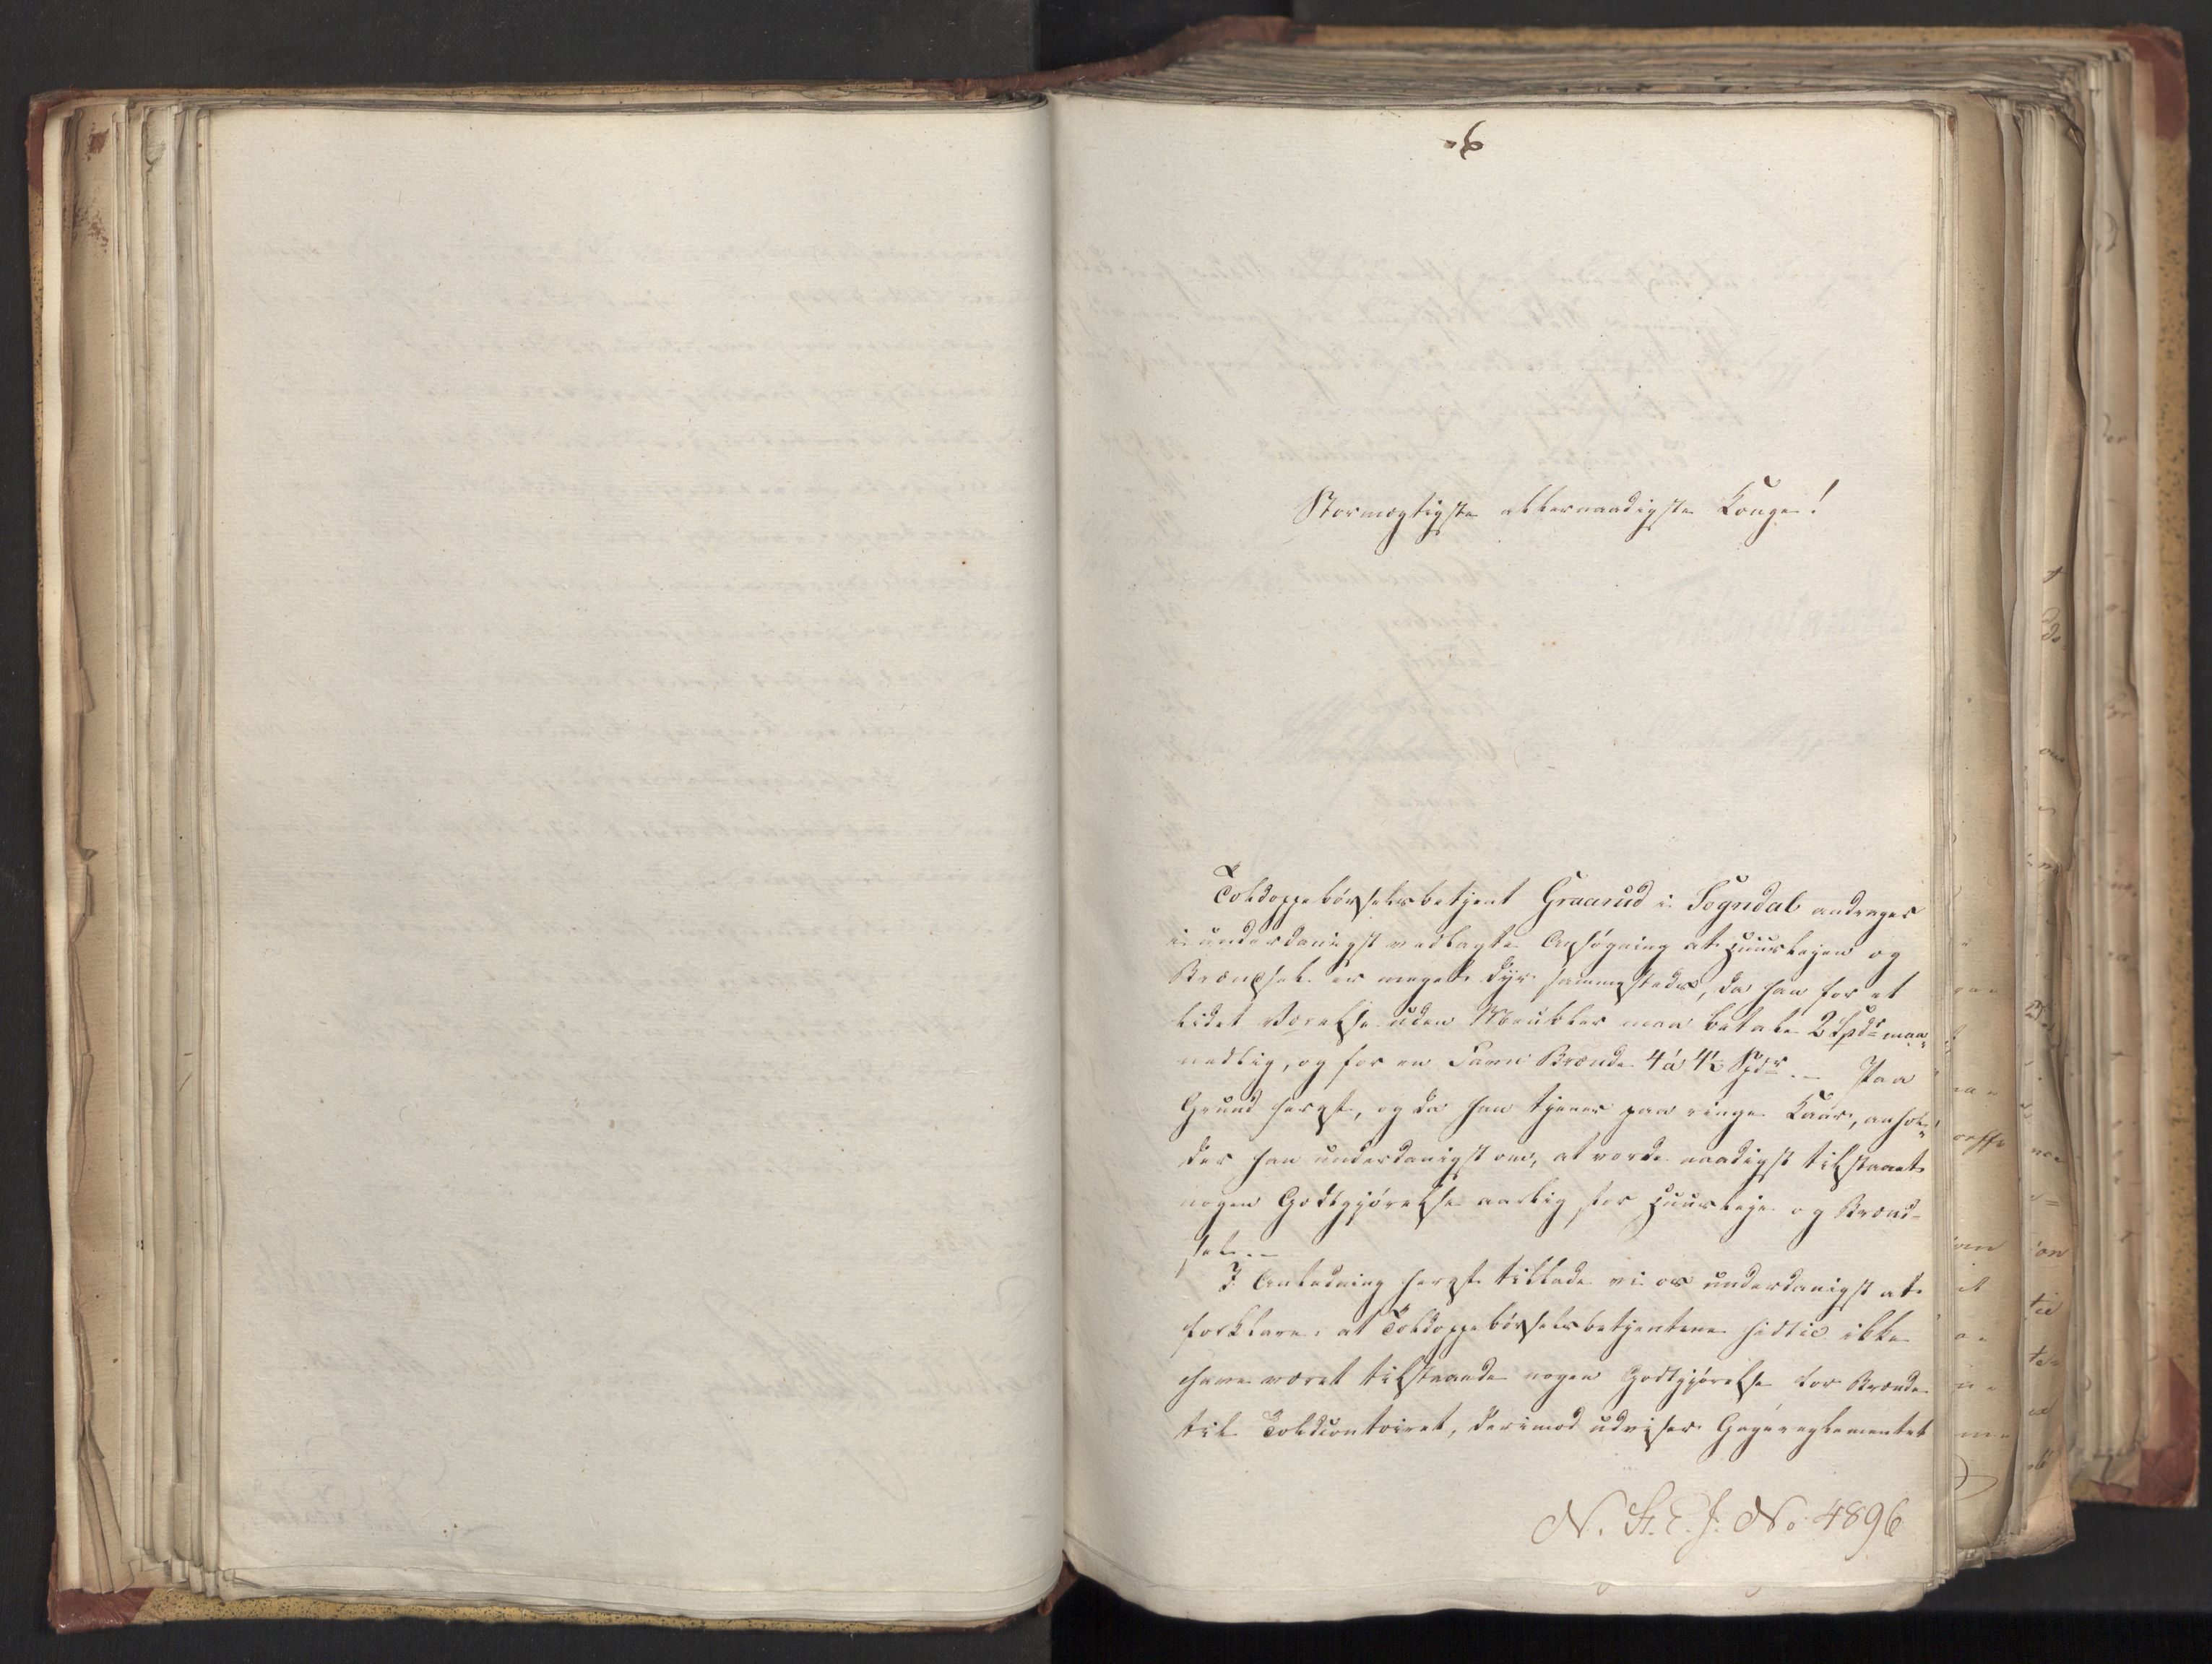 6.
Stormægtigste allernaadigste Konge!
Toldoppebørselsbetjent Graarud i Sogndal andrager
i underdanigst vedlagte Ansøgning at Huusleien og
Brændsel er meget dyr sammesteds, da han for et
lidet Værelse uden Meubler maa betale 2 Spdr maa„
nedlig, og for en Favn Brænde 4 á 4½ Spdr. — Paa
Grund heraf, og da han tjener paa ringe Kaar, anhol„
der han underdanigst om, at vorde naadigst tilstaaet
nogen Godtgjørelse aarlig for Huusleie og Brænd-
sel. —
I Anledning heraf tillade vi os underdanigst at
forklare, at Toldoppebørselsbetjentene hidtil ikke
have været tilstaaede nogen Godtgjørelse for Brænde
til Toldcontoiret, derimod udviser Gagereglementet
N. St. E. J. No 4896